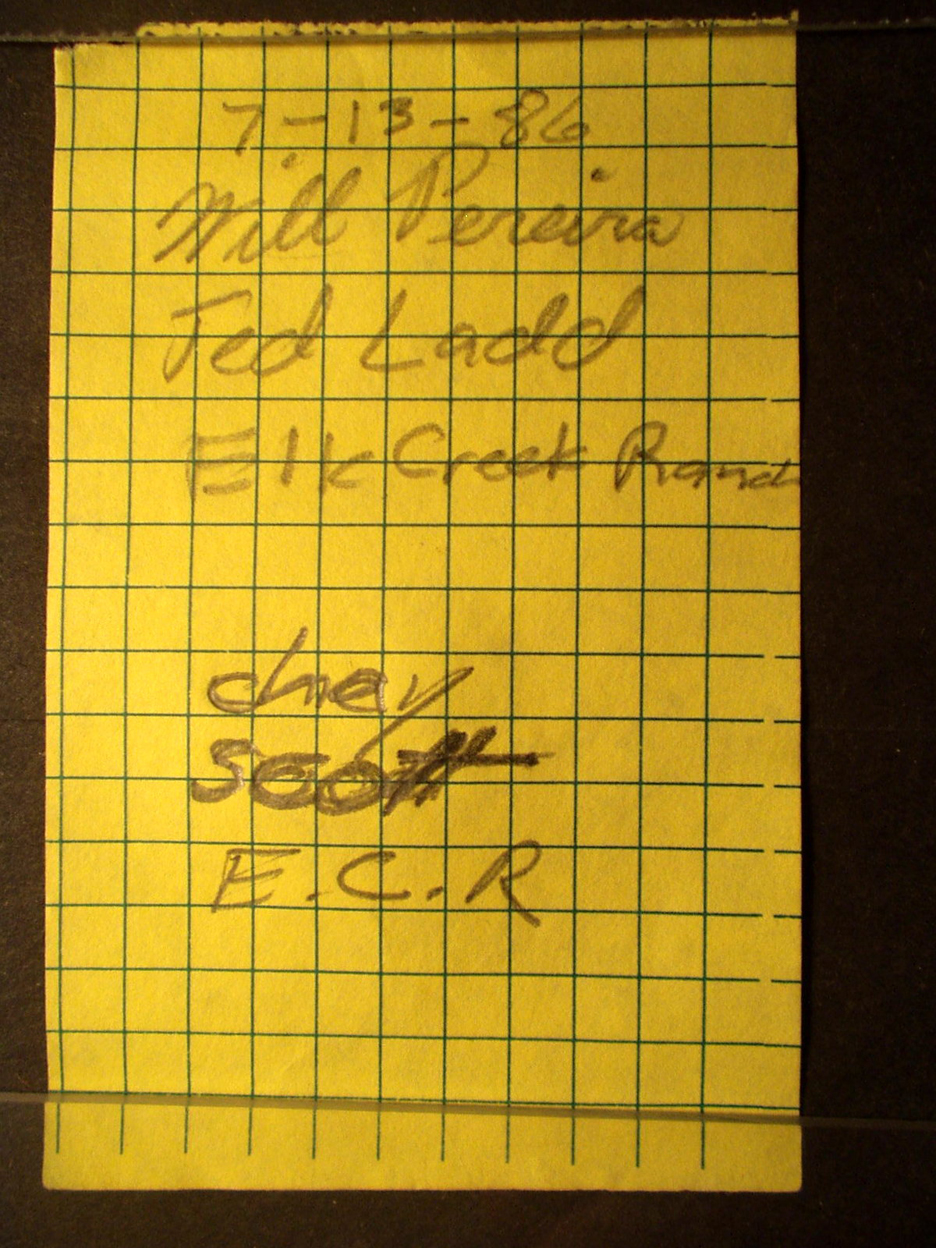 7-13-86
Will Pereira
Ted Ladd
Elk Creek Ranch
scott
E.C.R